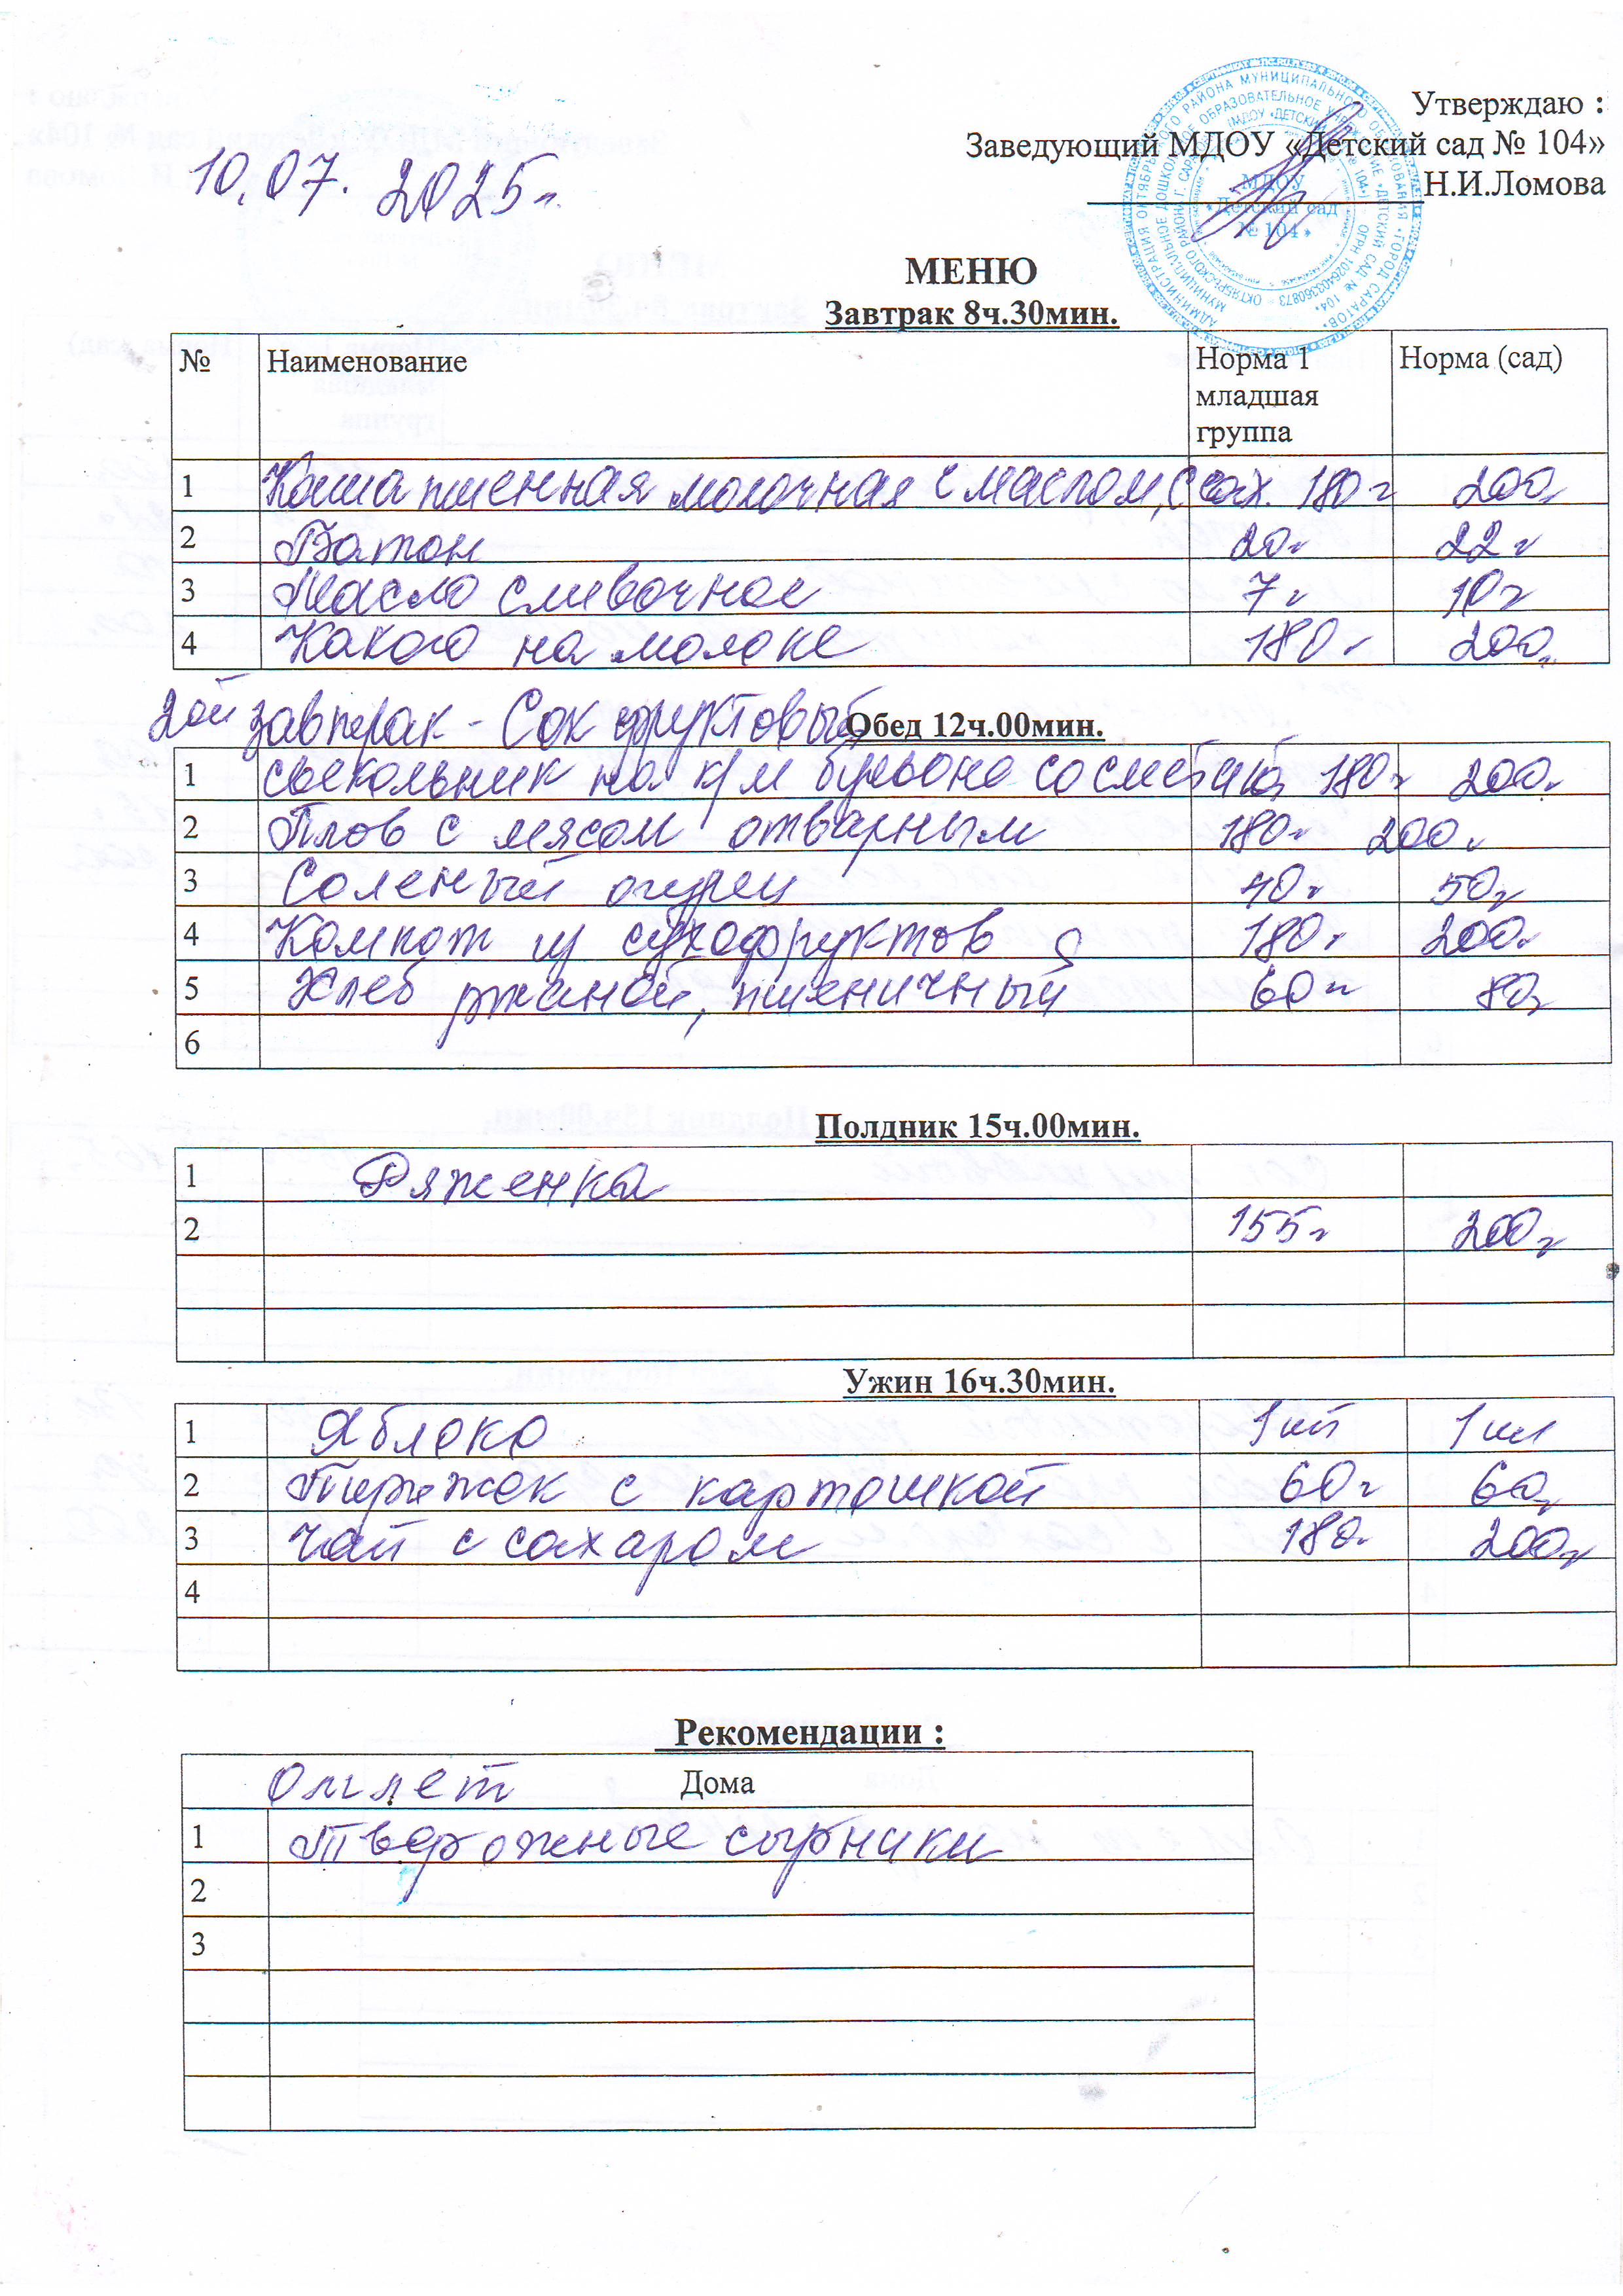 Утверждаю :
Заведующий МДОУ «Детский сад № 104»
10.07. 2025г
Н.И.Ломова
МДОУ
«Детский сад
№ 104»
МЕНЮ
Завтрак 8ч.30мин.
№ Наименование Норма 1 младшая группа Норма (сад)
1 Каша пшенная молочная с маслом, с сах. 180г 200г
2 Батон 20г 22г
3 Масло сливочное 7г 10г
4 Какого на молоке 180г 200г
2ой завтрак - Сок фруктовый
Обед 12ч.00мин.
1 свекольник на к/м бульоне со сметаной 180г 200г
2 Плов с мясом отварным 180г 200г
3 Соленый огурец 40г 50г
4 Компот из сухофруктов 180г 200г
5 Хлеб ржаной, пшеничный 60г 80г
6
Полдник 15ч.00мин.
1 Ряженка
2 155г 200г
Ужин 16ч.30мин.
1 Яблоко 1шт 1шт
2 Пирожок с картошкой 60г 60г
3 Чай с сахаром 180г 200г
4
Рекомендации :
Омлет Дома
1 Творожные сырники
2
3